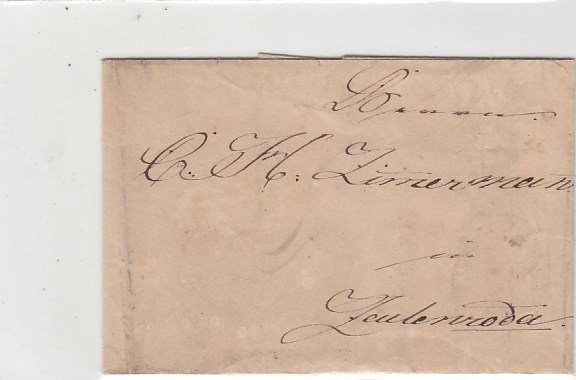 Herrn
C. H. Zimerman
in
Zeulenroda.